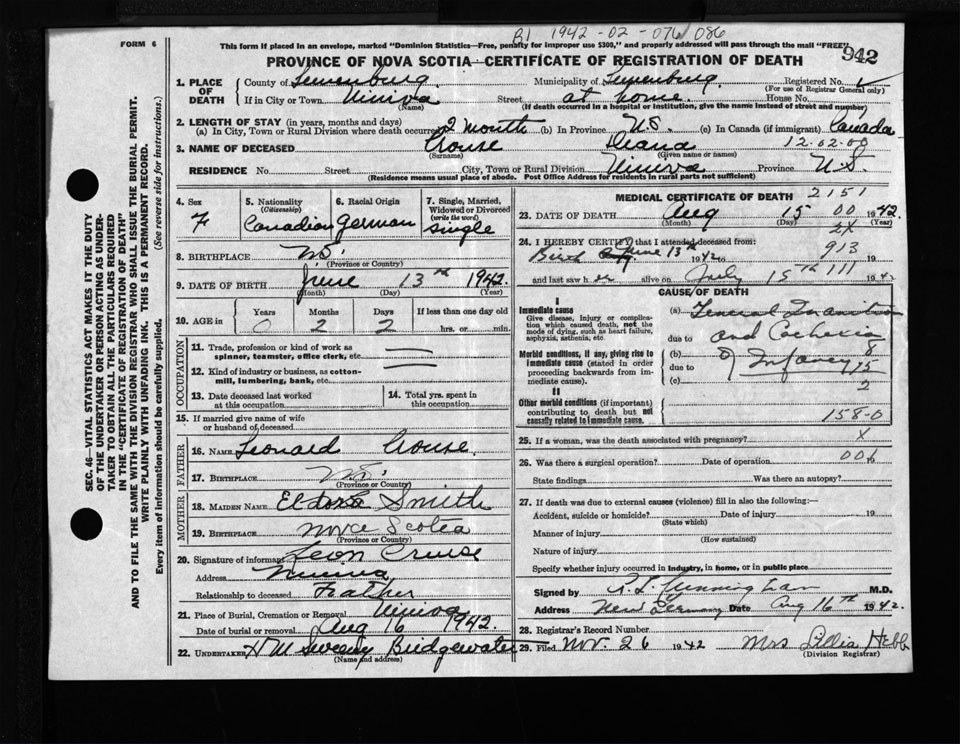 B1 1942-02-076/086
FORM 6
This form if placed in an envelope, marked "Dominion Statistics—Free, penalty for improper use $300," and properly addressed will pass through the mail "FREE"
942
PROVINCE OF NOVA SCOTIA—CERTIFICATE OF REGISTRATION OF DEATH
1. PLACE OF DEATH
County of Lunenburg Municipality of Lunenburg Registered No.
(For use of Registrar General only)
If in City or Town Street at home House No.
(Name) (If death occurred in a hospital or institution, give the name instead of street and number)
2. LENGTH OF STAY (in years, months and days)
(a) In City, Town or Rural Division where death occurred 2 month (b) In Province N.S. (c) In Canada (if immigrant) Canada
12-02-00
3. NAME OF DECEASED Crouse Diana
(Surname) (Given name or names)
RESIDENCE No. Street City, Town or Rural Division Province N.S.
(Residence means usual place of abode. Post Office Address for residents in rural parts not sufficient)
4. Sex F
5. Nationality (Citizenship) Canadian
6. Racial Origin German
7. Single, Married, Widowed or Divorced (write the word) Single
8. BIRTHPLACE N.S.
(Province or Country)
9. DATE OF BIRTH June 13th 1942
(Month) (Day) (Year)
10. AGE in Years Months Days If less than one day old
0 2 2 hrs. or min.
OCCUPATION
11. Trade, profession or kind of work as spinner, teamster, office clerk, etc.
12. Kind of industry or business, as cotton-mill, lumbering, bank, etc.
13. Date deceased last worked at this occupation
14. Total yrs. spent in this occupation
15. If married give name of wife or husband of deceased
FATHER
16. NAME Leonard Crouse
17. BIRTHPLACE N.S.
(Province or Country)
MOTHER
18. MAIDEN NAME Eldora Smith
19. BIRTHPLACE Nova Scotia
(Province or Country)
20. Signature of informant Leon Cruise
Address
Relationship to deceased Father
21. Place of Burial, Cremation or Removal
Date of burial or removal Aug 16 1942.
22. UNDERTAKER Sweeny Bridgewater
(Name and address)
MEDICAL CERTIFICATE OF DEATH 2151
23. DATE OF DEATH Aug 15 00 1942.
(Month) (Day) (Year)
2X
24. I HEREBY CERTIFY that I attended deceased from: 913
Birth June 13th 1942
and last saw her alive on July 15th 111 1942
CAUSE OF DEATH
I
Immediate cause
Give disease, injury or complication which caused death, not the mode of dying, such as heart failure, asphyxia, asthenia, etc.
Morbid conditions, if any, giving rise to immediate cause (stated in order proceeding backwards from immediate cause).
II
Other morbid conditions (if important) contributing to death but not causally related to immediate cause.
(a) General Inanition
due to and Cachexia
(b) 8
due to of Infancy 715
(c) 2
158-0
25. If a woman, was the death associated with pregnancy? X
26. Was there a surgical operation? Date of operation 006
State findings Was there an autopsy?
27. If death was due to external causes (violence) fill in also the following:—
Accident, suicide or homicide? Date of injury 19
(State which)
Manner of injury
(How sustained)
Nature of injury
Specify whether injury occurred in industry, in home, or in public place
Signed by M.D.
Address New Germany Date Aug 16th 1942.
28. Registrar's Record Number
29. Filed Nov. 26 1942 Mrs Hebb
(Division Registrar)
SEC. 46—VITAL STATISTICS ACT MAKES IT THE DUTY
OF THE UNDERTAKER OR PERSON ACTING AS UNDER-
TAKER TO OBTAIN ALL THE PARTICULARS REQUIRED
IN THE "CERTIFICATE OF REGISTRATION OF DEATH"
AND TO FILE THE SAME WITH THE DIVISION REGISTRAR WHO SHALL ISSUE THE BURIAL PERMIT.
WRITE PLAINLY WITH UNFADING INK. THIS IS A PERMANENT RECORD.
Every item of information should be carefully supplied. (See reverse side for instructions.)